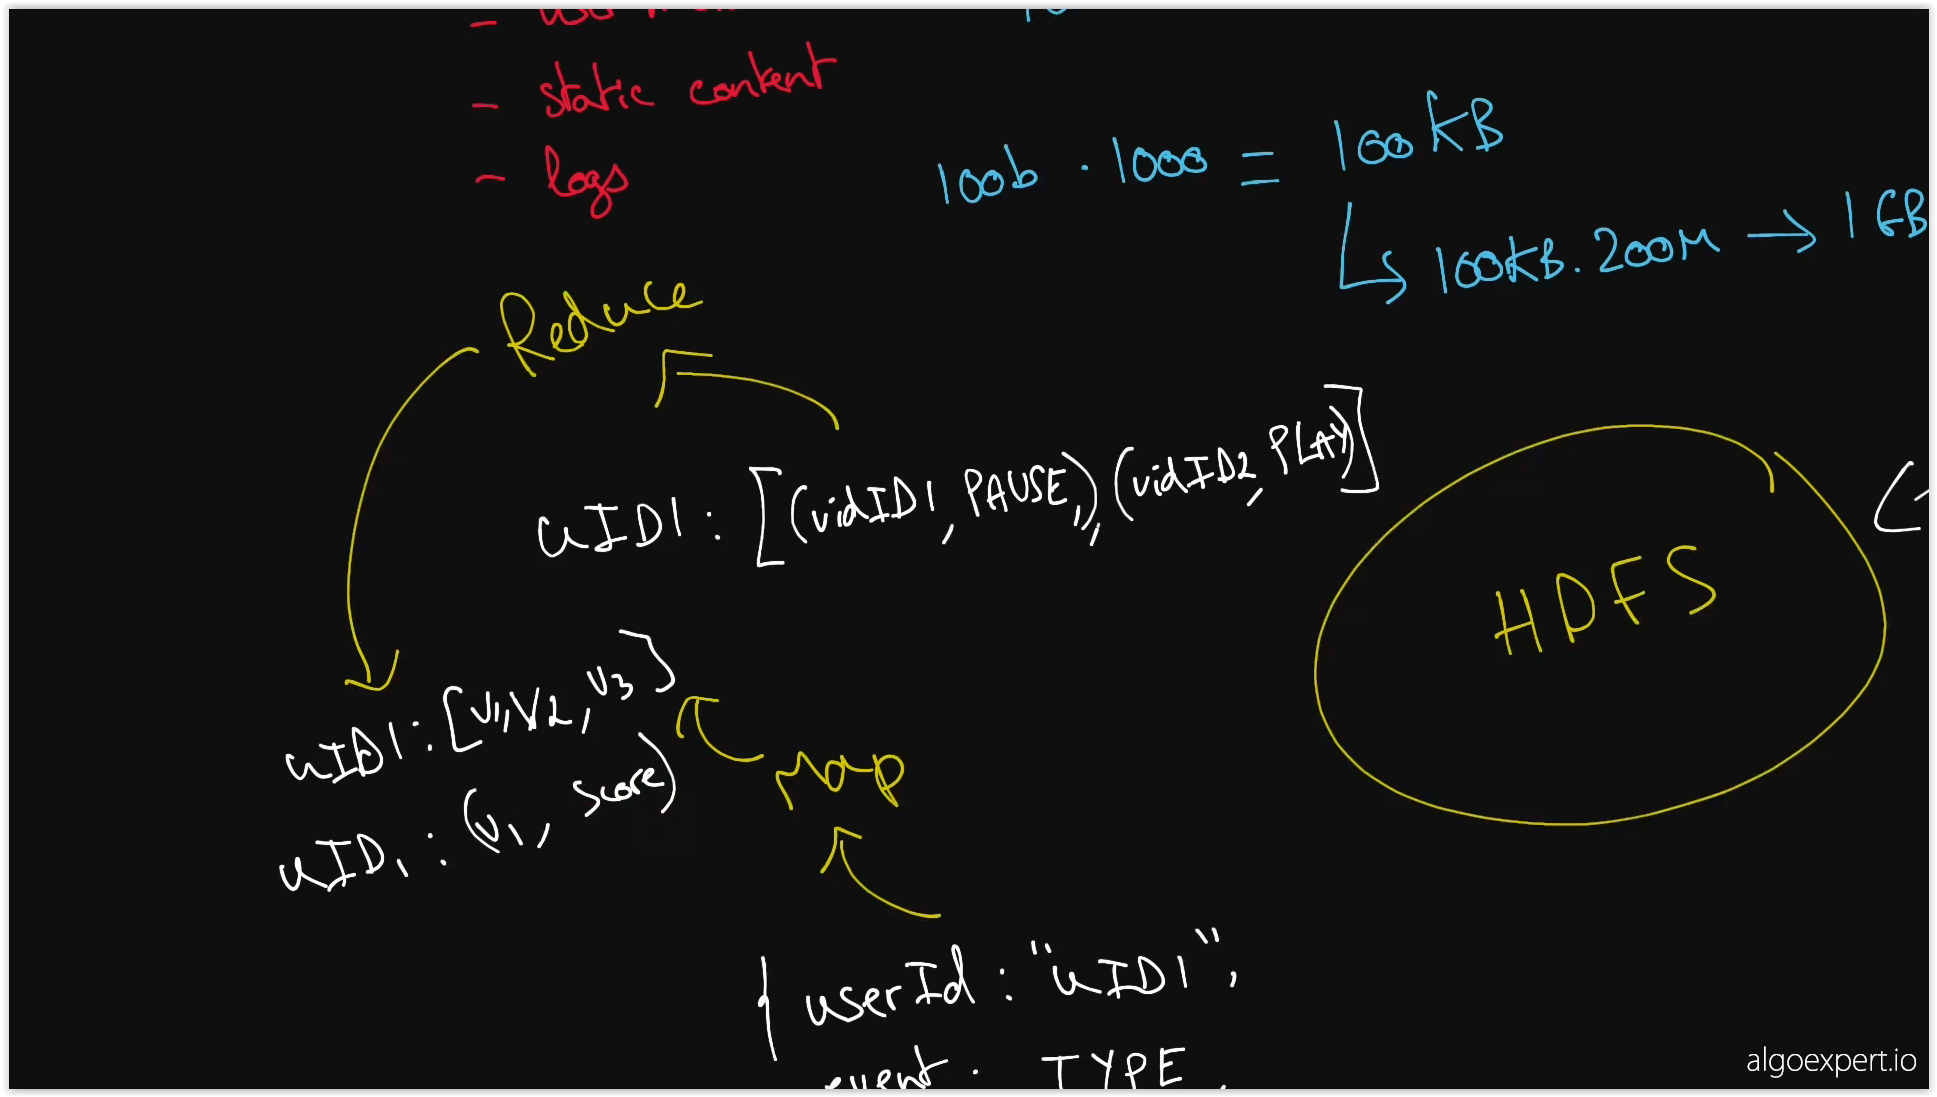 - static content
- logs
100b · 1000 = 100KB
↳ 100KB · 200M → 1 GB
Reduce
uID1 : [(vidID1, PAUSE,), (vidID2, PLAY)]
HDFS
uID1 : [V1, V2, V3]
Map
uID1 : (V1, score)
{ userId : "uID1",
event : TYPE,
algoexpert.io